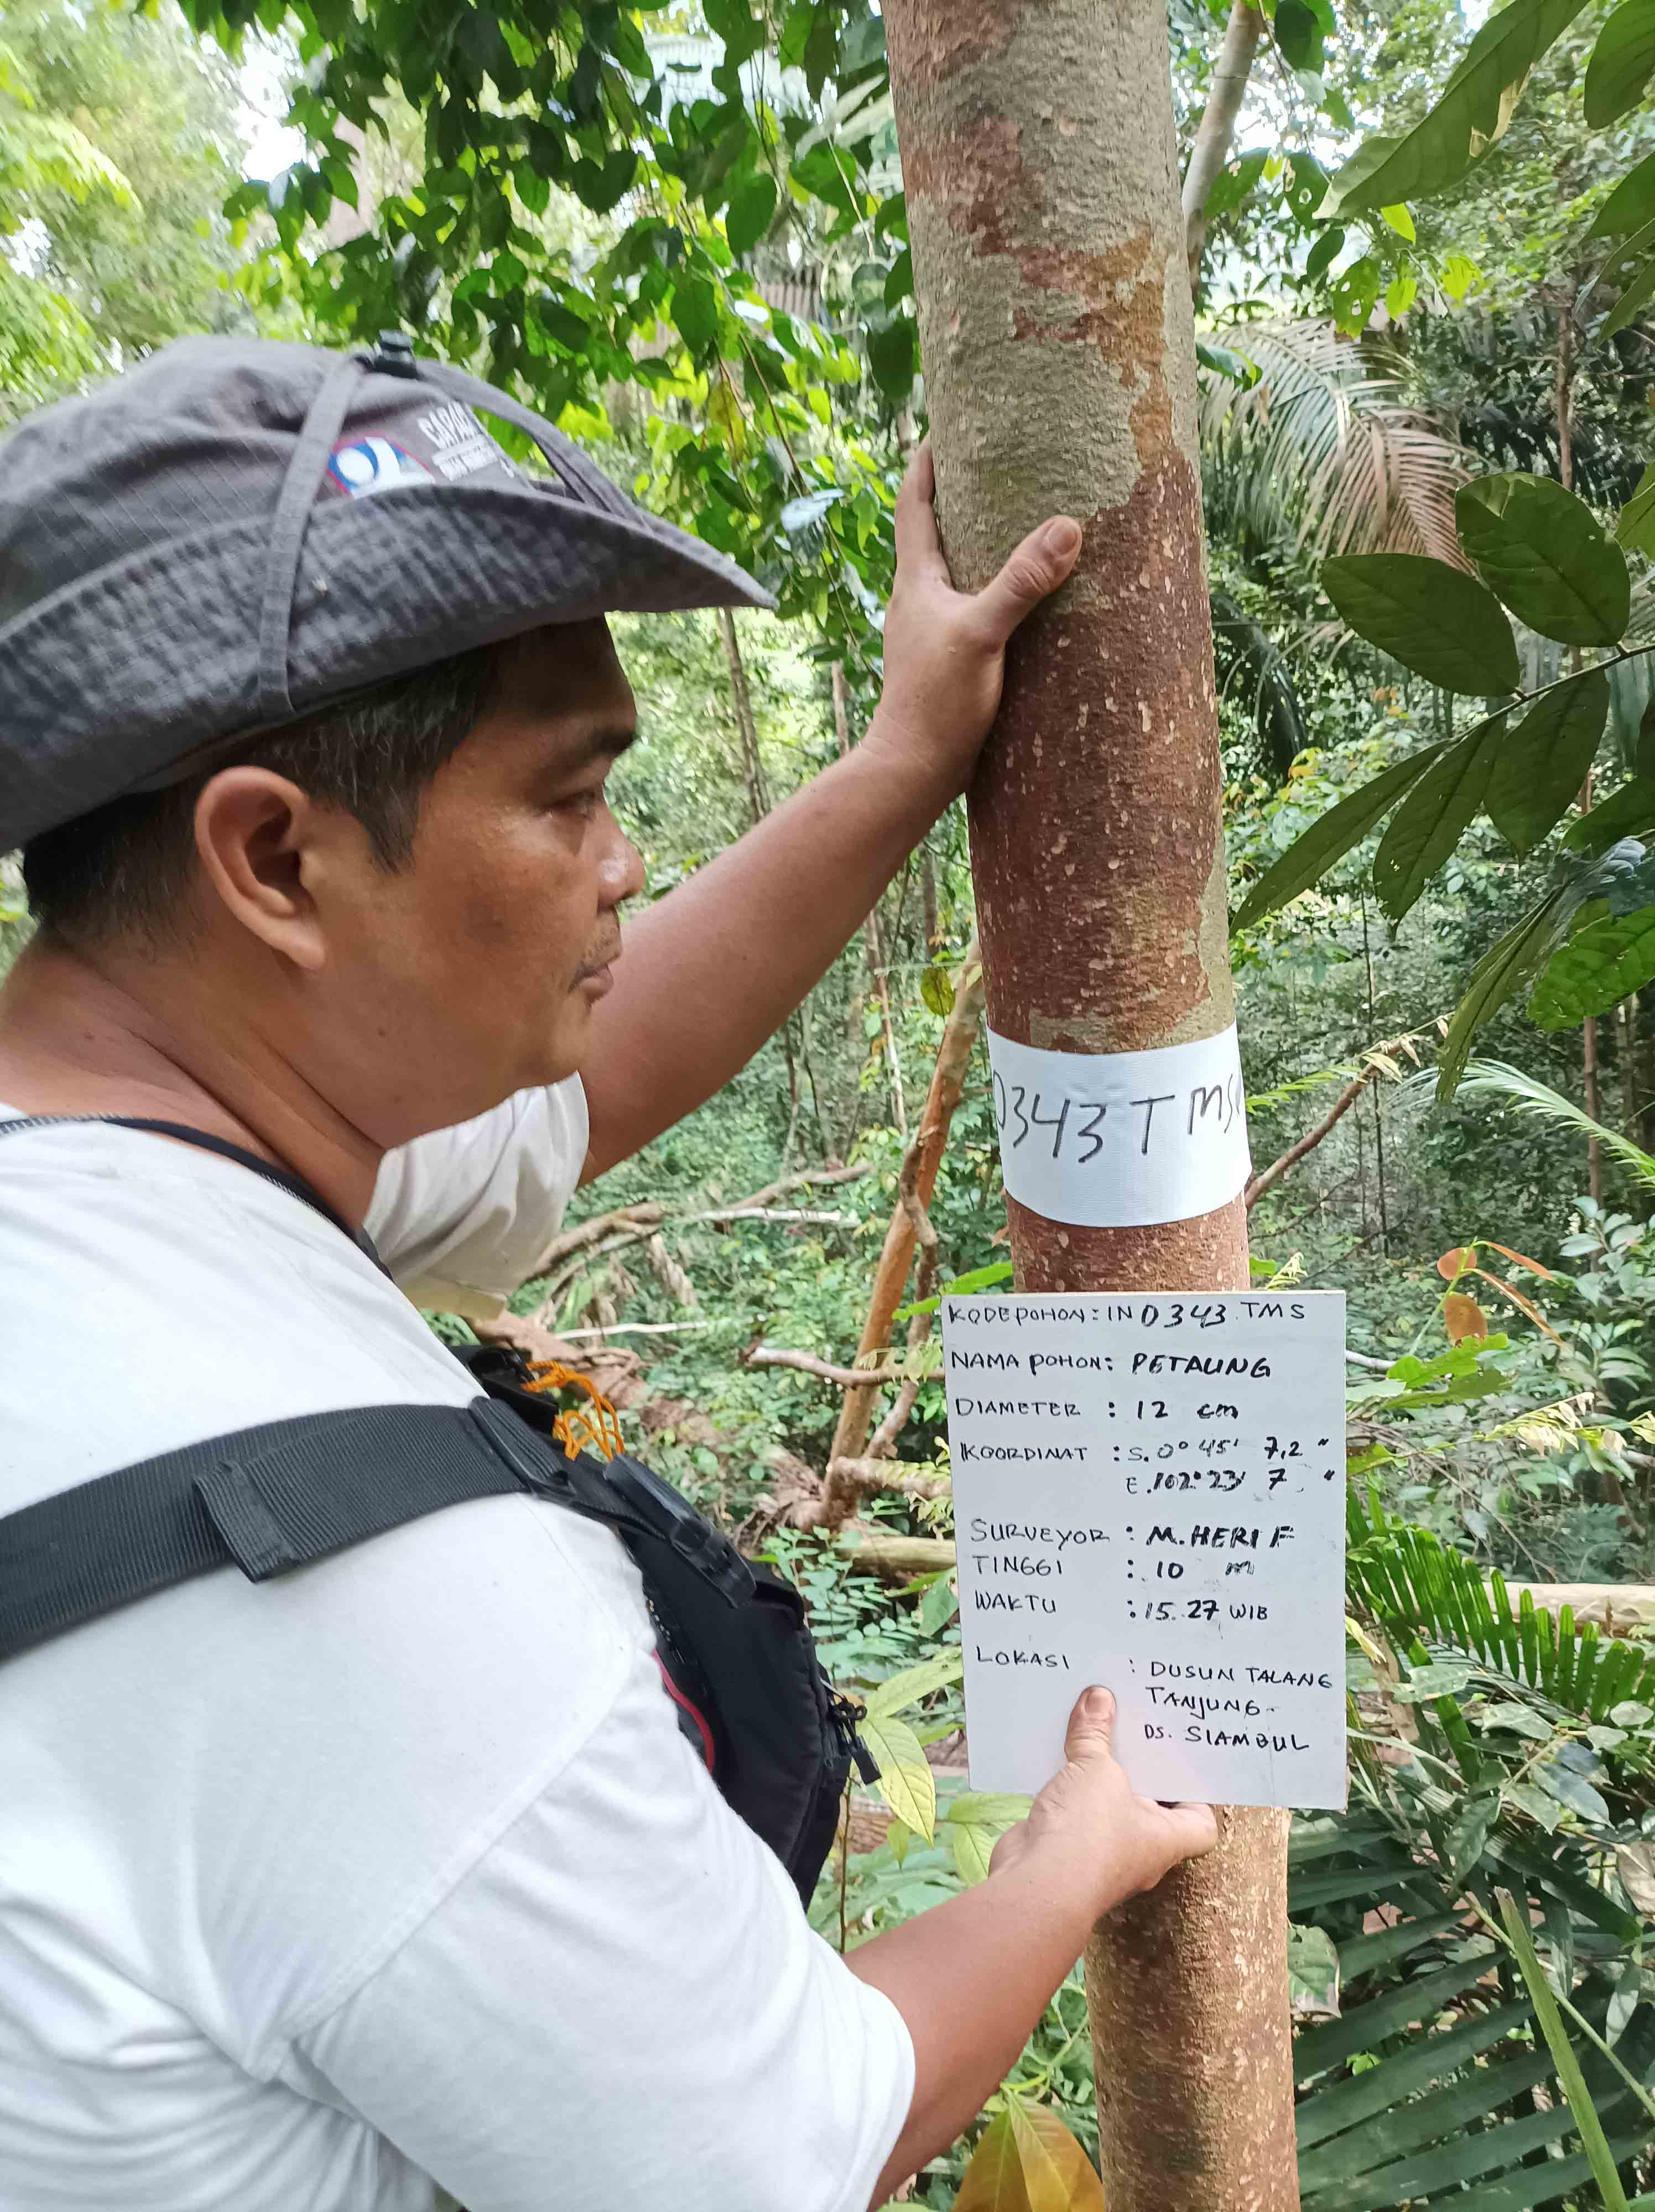 0343 TMS
KODE POHON : IN 0343 TMS
NAMA POHON : PETALING
DIAMETER : 12 cm
KOORDINAT : S. 0° 45' 7,2 "
E. 102° 23' 7 "
SURVEYOR : M. HERI F
TINGGI : 10 m
WAKTU : 15.27 WIB
LOKASI : DUSUN TALANG
TANJUNG
DS. SIAMBUL